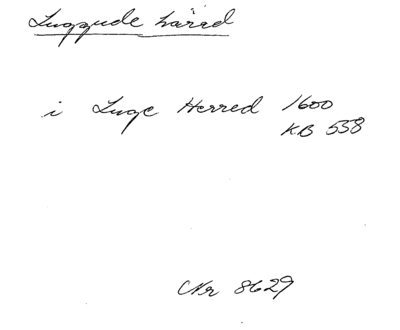 Luggude härad
i Luge Herred 1600
KB 558
Nr 8629